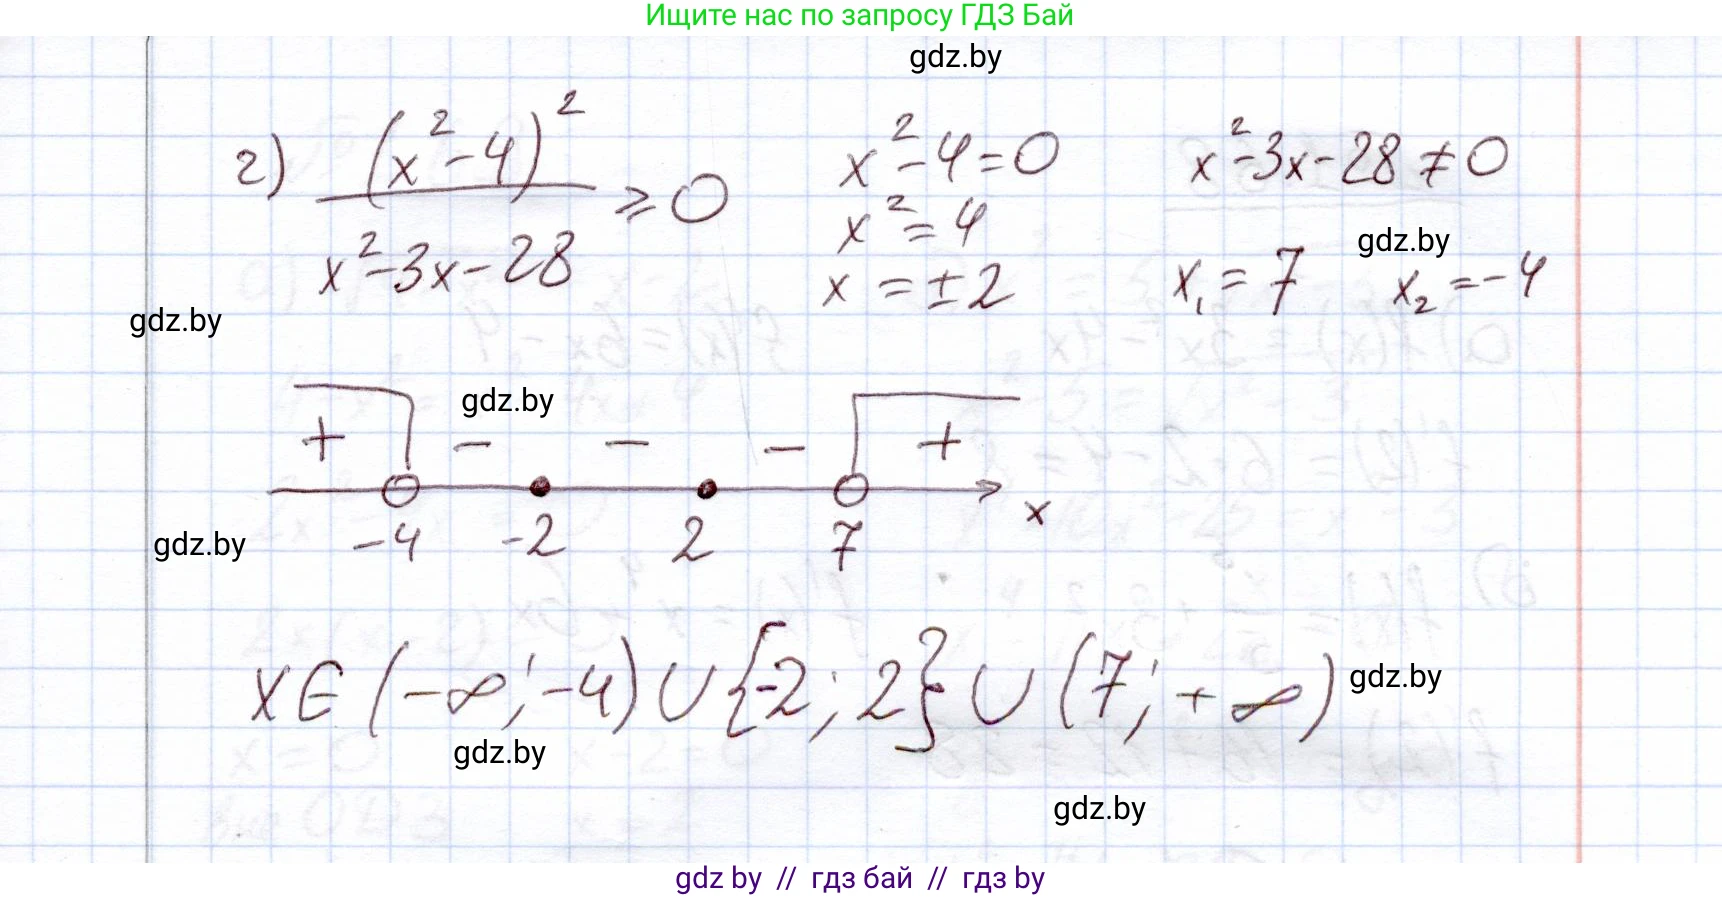 Ищите нас по запросу ГДЗ Бай
gdz.by
г) (x²-4)² / (x²-3x-28) ⩾ 0
x²-4=0
x²=4
x=±2
x²-3x-28≠0
gdz.by
x₁=7 x₂=-4
gdz.by
gdz.by
+ - - - +
-4 -2 2 7 x
gdz.by
x∈(-∞;-4)∪{-2;2}∪(7;+∞)
gdz.by
gdz.by
gdz.by
gdz by // гдз бай // гдз by